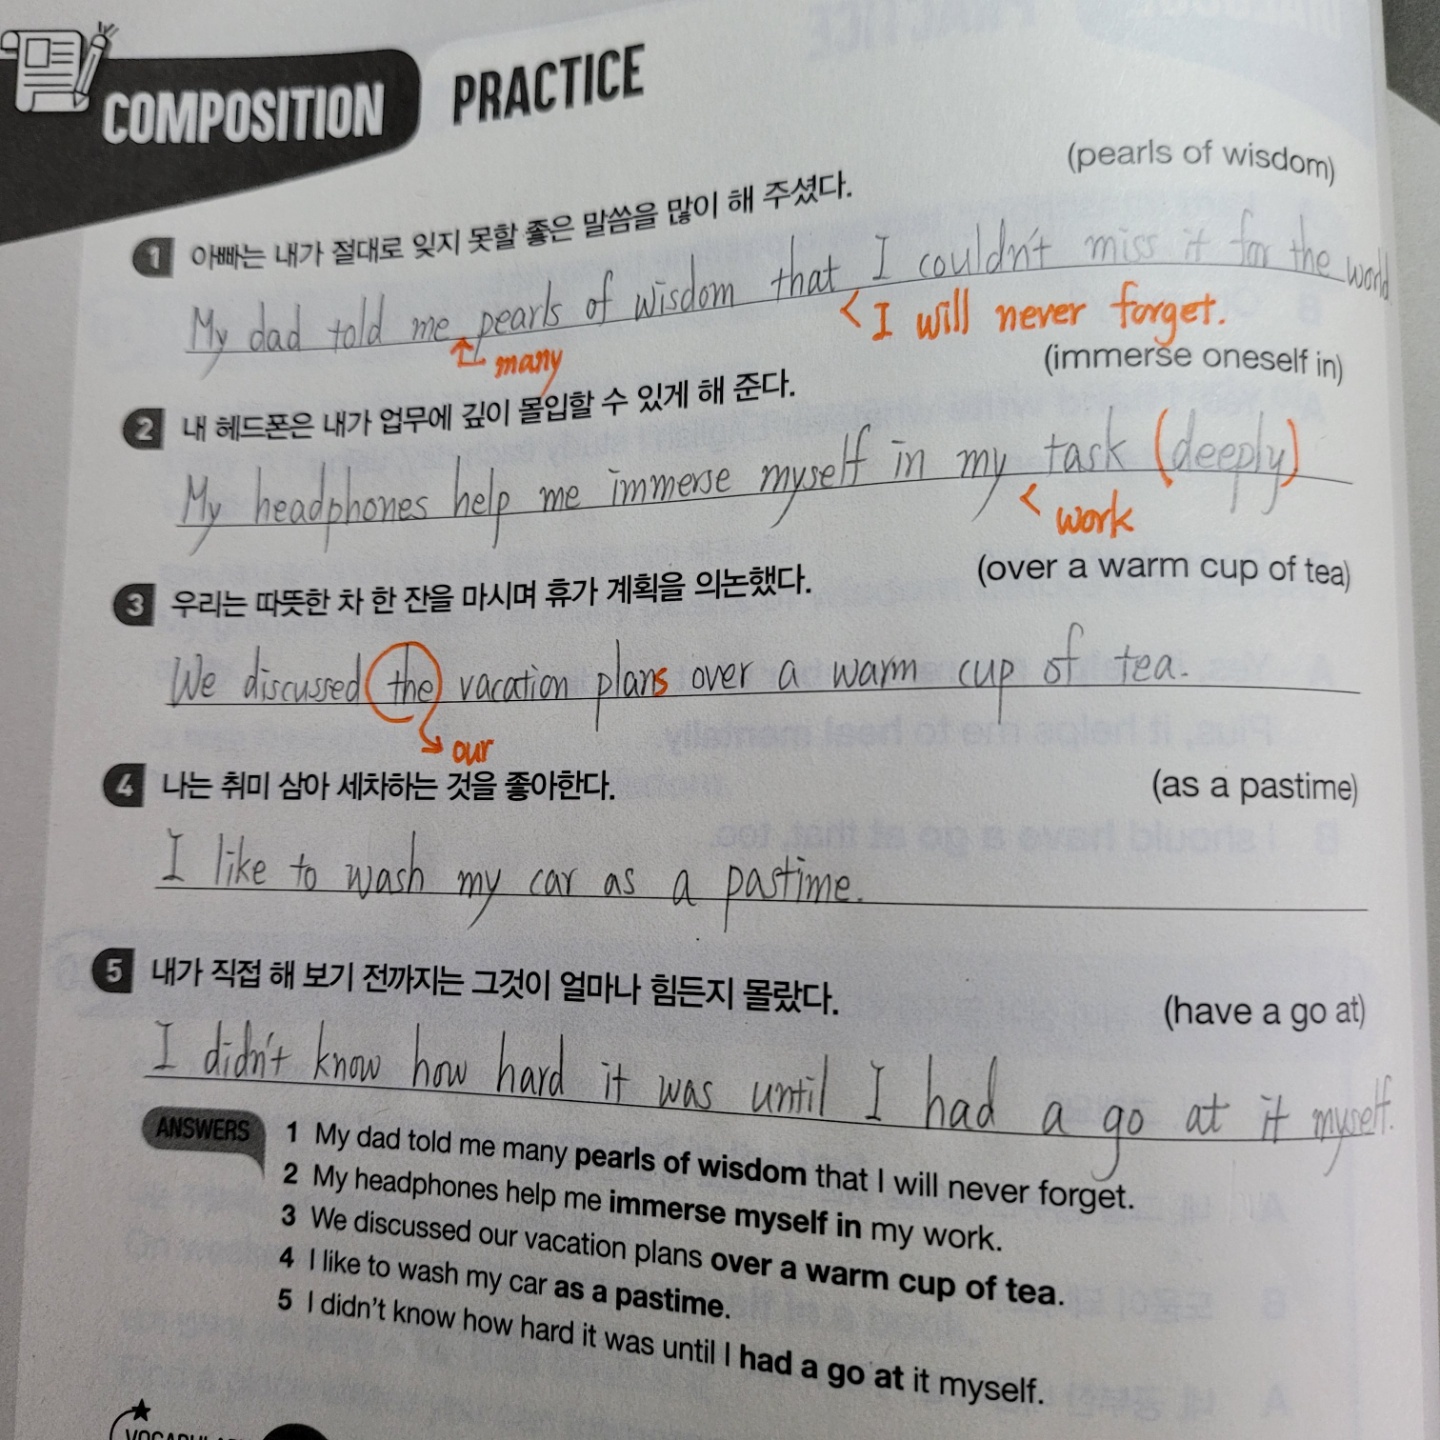 COMPOSITION PRACTICE
(pearls of wisdom)
1 아빠는 내가 절대로 잊지 못할 좋은 말씀을 많이 해 주셨다.
My dad told me pearls of wisdom that I couldn't miss it for the world
many
< I will never forget.
(immerse oneself in)
2 내 헤드폰은 내가 업무에 깊이 몰입할 수 있게 해 준다.
My headphones help me immerse myself in my task (deeply)
< work
(over a warm cup of tea)
3 우리는 따뜻한 차 한 잔을 마시며 휴가 계획을 의논했다.
We discussed the vacation plans over a warm cup of tea.
our
4 나는 취미 삼아 세차하는 것을 좋아한다.
(as a pastime)
I like to wash my car as a pastime.
5 내가 직접 해 보기 전까지는 그것이 얼마나 힘든지 몰랐다.
(have a go at)
I didn't know how hard it was until I had a go at it myself.
ANSWERS
1 My dad told me many pearls of wisdom that I will never forget.
2 My headphones help me immerse myself in my work.
3 We discussed our vacation plans over a warm cup of tea.
4 I like to wash my car as a pastime.
5 I didn't know how hard it was until I had a go at it myself.